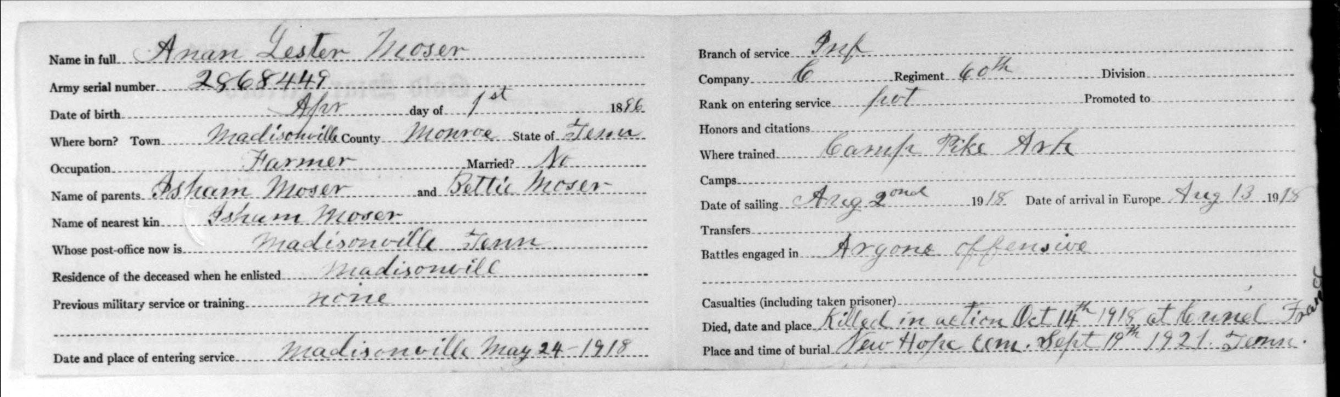 Name in full Anan Lester Moser
Army serial number 2868449
Date of birth Apr day of 1st 1896
Where born? Town Madisonville County Monroe State of Tenn
Occupation Farmer Married? No
Name of parents Isham Moser and Bettie Moser
Name of nearest kin Isham Moser
Whose post-office now is Madisonville Tenn
Residence of the deceased when he enlisted Madisonvill
Previous military service or training none
Date and place of entering service Madisonville May 24-1918
Branch of service Inf
Company C Regiment 60th Division
Rank on entering service pvt Promoted to
Honors and citations
Where trained Camp Pike Ark
Camps
Date of sailing Aug 2ond 1918 Date of arrival in Europe Aug 13 1918
Transfers
Battles engaged in Argone offensive
Casualties (including taken prisoner)
Died, date and place Killed in action Oct 14th 1918 at Cunel France
Place and time of burial New Hope Cem. Sept 19th 1921. Tenn.